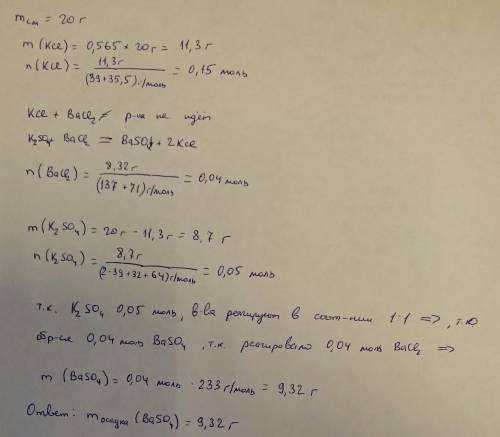 mсм = 20 г
m (KCl) = 0,565 * 20 г = 11,3 г
n (KCl) = 11,3 г / (39+35,5) г/моль = 0,15 моль
KCl + BaCl₂ ≠ р-ия не идёт
K₂SO₄ + BaCl₂ = BaSO₄↓ + 2KCl
n (BaCl₂) = 8,32 г / (137 + 71) г/моль = 0,04 моль
m (K₂SO₄) = 20 г - 11,3 г = 8,7 г
n (K₂SO₄) = 8,7 г / (2·39+32+64) г/моль = 0,05 моль
т.к. K₂SO₄ 0,05 моль, в-ва реагируют в соот-нии 1:1 =>, т.ю
обр-ся 0,04 моль BaSO₄, т.к. реагировало 0,04 моль BaCl₂ =>
m (BaSO₄) = 0,04 моль · 233 г/моль = 9,32 г
Ответ: m осадка (BaSO₄) = 9,32 г